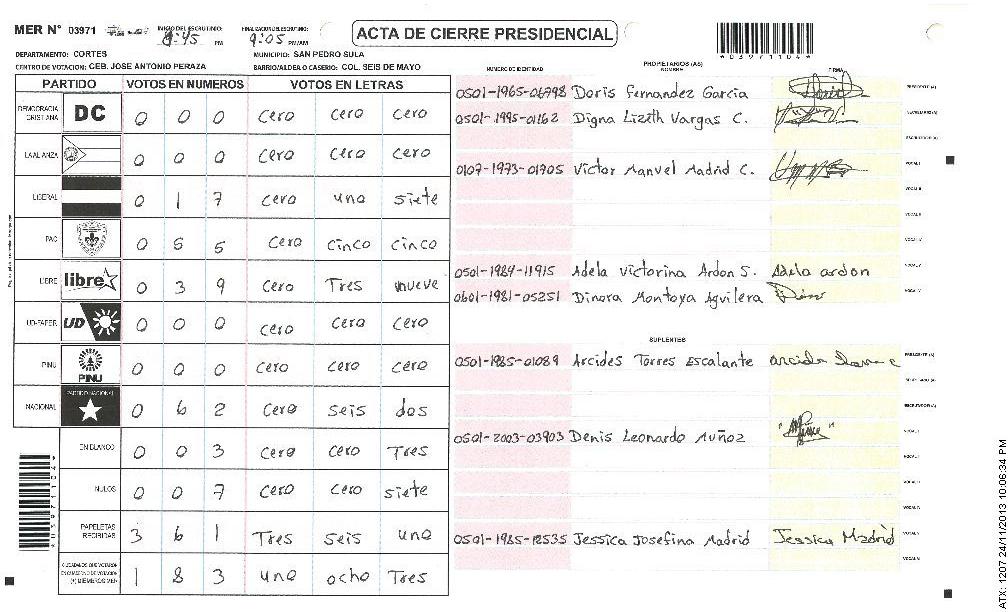 MER Nº 03971
INICIO DEL ESCRUTINIO: 8:45 PM
FINALIZACION DEL ESCRUTINIO: 9:05 PM/AM
ACTA DE CIERRE PRESIDENCIAL
*03971104*
DEPARTAMENTO: CORTES
MUNICIPIO: SAN PEDRO SULA
CENTRO DE VOTACION: CEB. JOSE ANTONIO PERAZA
BARRIO/ALDEA O CASERIO: COL. SEIS DE MAYO
PARTIDO VOTOS EN NUMEROS VOTOS EN LETRAS
DEMOCRACIA CRISTIANA DC 0 0 0 Cero Cero Cero
LA ALIANZA 0 0 0 Cero Cero Cero
LIBERAL 0 1 7 Cero uno siete
PAC 0 5 5 Cero Cinco Cinco
LIBRE libre 0 3 9 Cero Tres nueve
UD-FAPER UD 0 0 0 Cero Cero Cero
PINU PINU 0 0 0 Cero Cero Cero
NACIONAL PARTIDO NACIONAL 0 6 2 Cero seis dos
EN BLANCO 0 0 3 Cero Cero Tres
NULOS 0 0 7 Cero Cero siete
PAPELETAS RECIBIDAS 3 6 1 Tres seis uno
CIUDADANOS QUE VOTARON EN CUADERNO DE VOTACION (+) MIEMBROS MER 1 8 3 uno ocho Tres
*03971104*
NUMERO DE IDENTIDAD PROPIETARIOS (AS) NOMBRE FIRMA
0501-1965-06798 Doris Fernandez Garcia PRESIDENTE (A)
0501-1995-01162 Digna Lizeth Vargas C. SECRETARIO (A)
ESCRUTADOR (A)
0107-1973-01705 Victor Manuel Madrid C. VOCAL I
VOCAL II
VOCAL III
VOCAL IV
0501-1984-11915 Adela Victorina Ardon S. Adela ardon VOCAL V
0601-1981-05251 Dinora Montoya Aguilera
SUPLENTES
0501-1985-01089 Arcides Torres Escalante PRESIDENTE (A)
SECRETARIO (A)
ESCRUTADOR (A)
0501-2003-03903 Denis Leonardo Muñoz VOCAL I
0501-1985-12535 Jessica Josefina Madrid Jessica Madrid
ATX: 1207 24/11/2013 10:06:34 PM